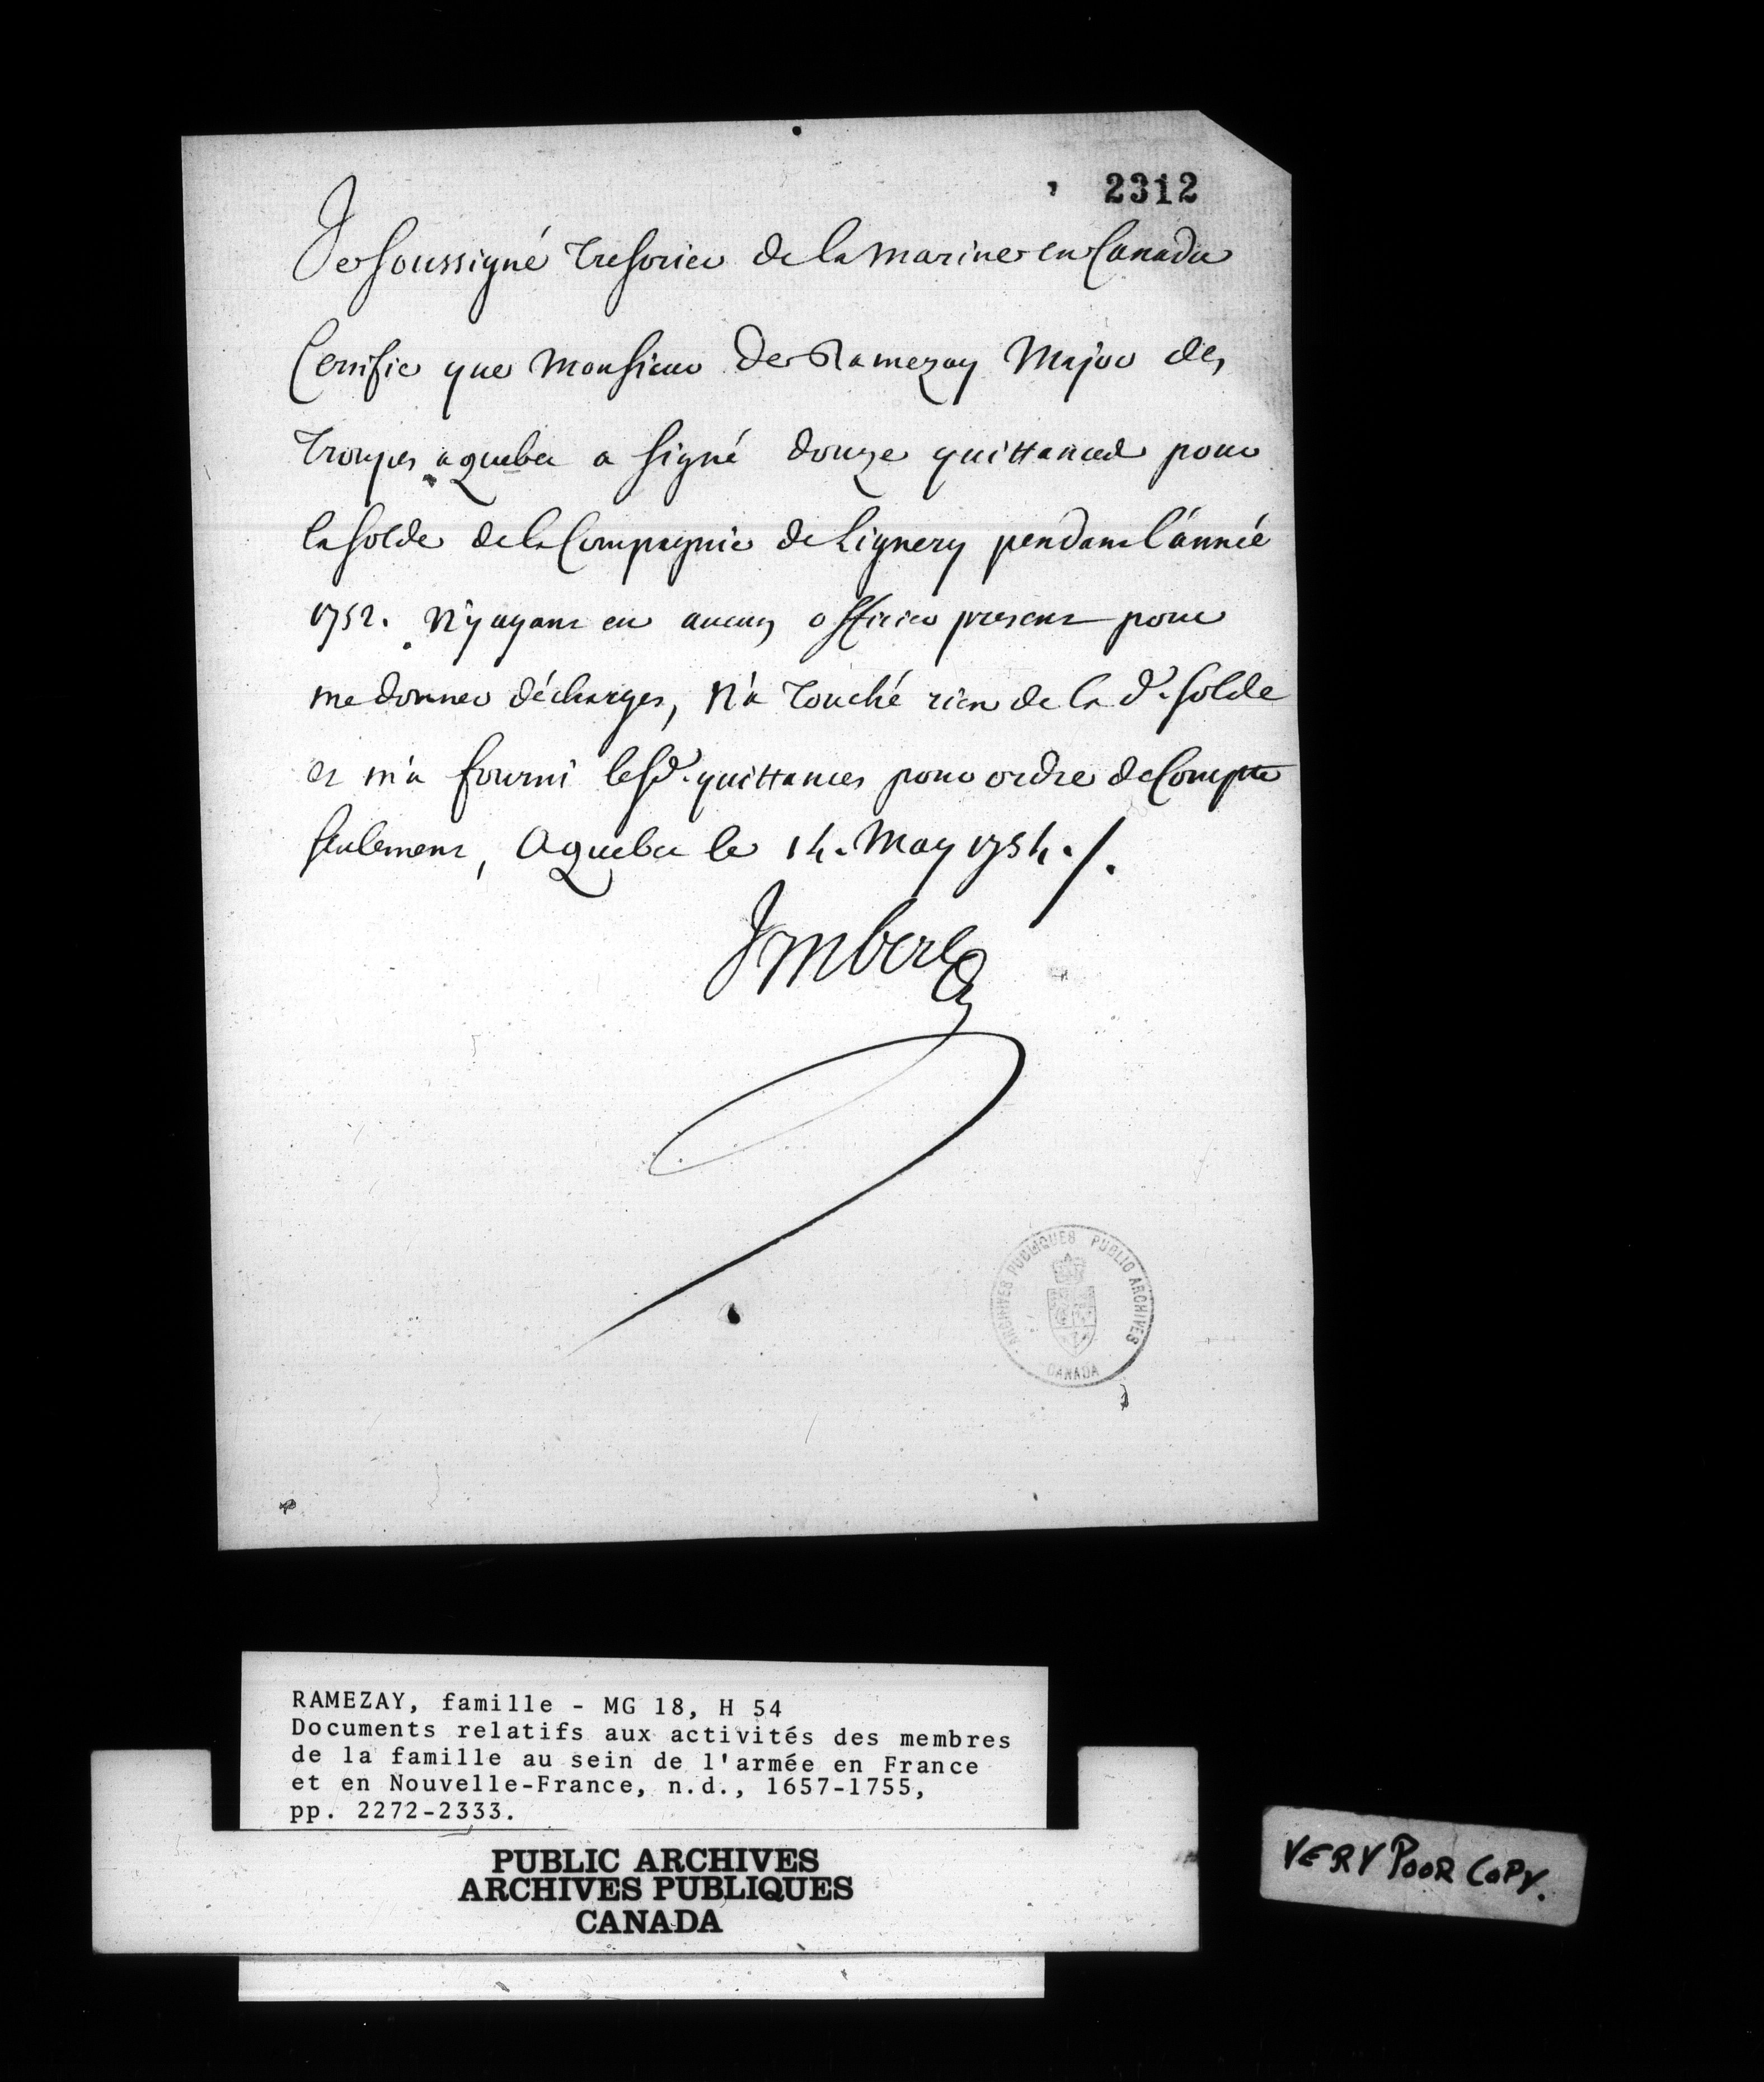 2312
Je soussigné Tresorier de la marine en Canada
Certifie que Monsieur de Ramezay Major des
Troupes a quebec a signé douze quittances pour
la solde de la Compagnie de Lignery pendant l'année
1752. N'y ayant eu aucun officier present pour
me donner décharges, N'a Touché rien de la de. solde
et m'a fourni lesd. quittances pour ordre de Compte
seulement, A quebec le 14. May 1754. /.
Imbert
ARCHIVES PUBLIQUES PUBLIC ARCHIVES
CANADA
RAMEZAY, famille - MG 18, H 54
Documents relatifs aux activités des membres
de la famille au sein de l'armée en France
et en Nouvelle-France, n.d., 1657-1755,
pp. 2272-2333.
PUBLIC ARCHIVES
ARCHIVES PUBLIQUES
CANADA
VERY POOR COPY.